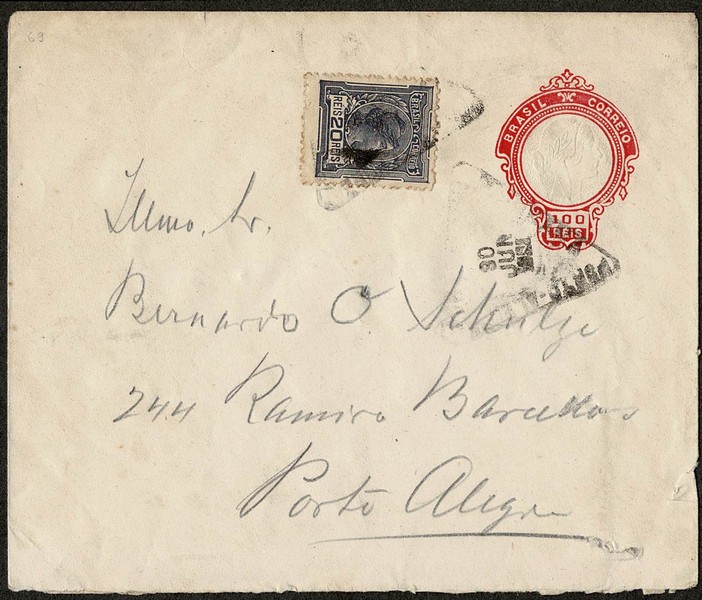 69
BRASIL CORREIO
100
REIS
BRASIL CORREIO
REIS 20 REIS
JUN
80
Illmo. Sr.
Bernardo O Schultze
244 Ramiro Barcellos
Porto Alegre